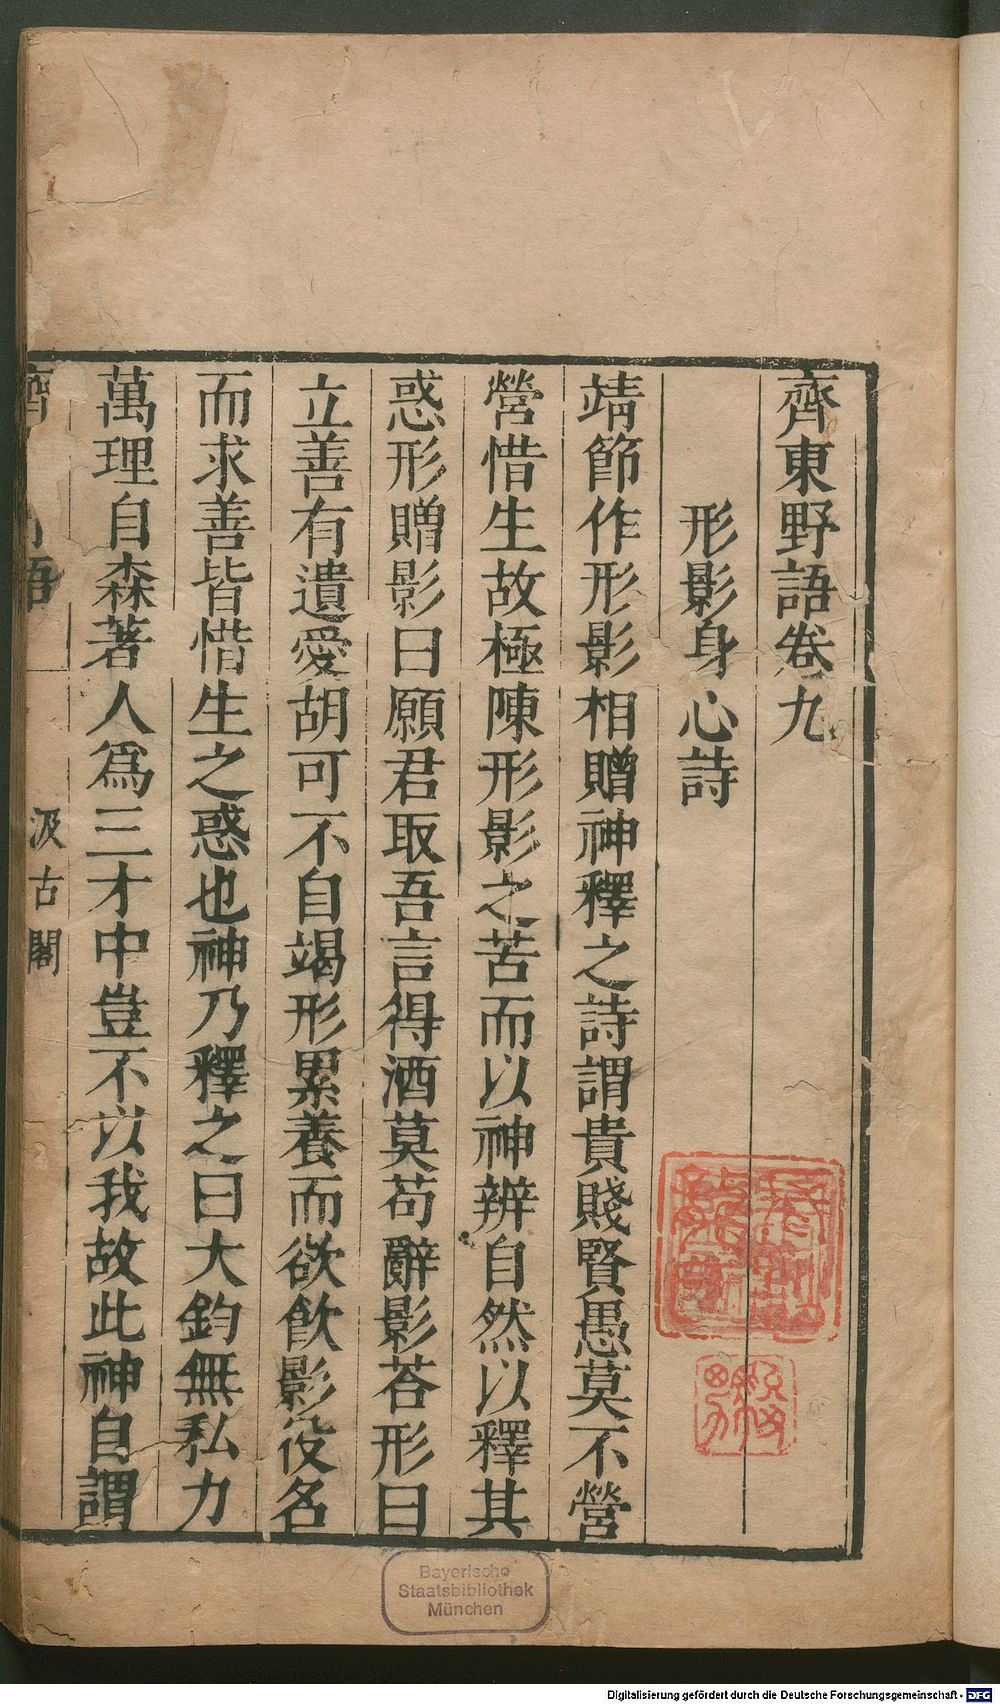 齊東野語卷九
形影身心詩
靖節作形影相贈神釋之詩謂貴賤賢愚莫不營
營惜生故極陳形影之苦而以神辨自然以釋其
惑形贈影曰願君取吾言得酒莫苟辭影荅形曰
立善有遺愛胡可不自竭形累養而欲飮影役名
而求善皆惜生之惑也神乃釋之曰大鈞無私力
萬理自森著人爲三才中豈不以我故此神自謂
語
汲古閣
Bayerische
Staatsbibliothek
München
Digitalisierung gefördert durch die Deutsche Forschungsgemeinschaft - DFG